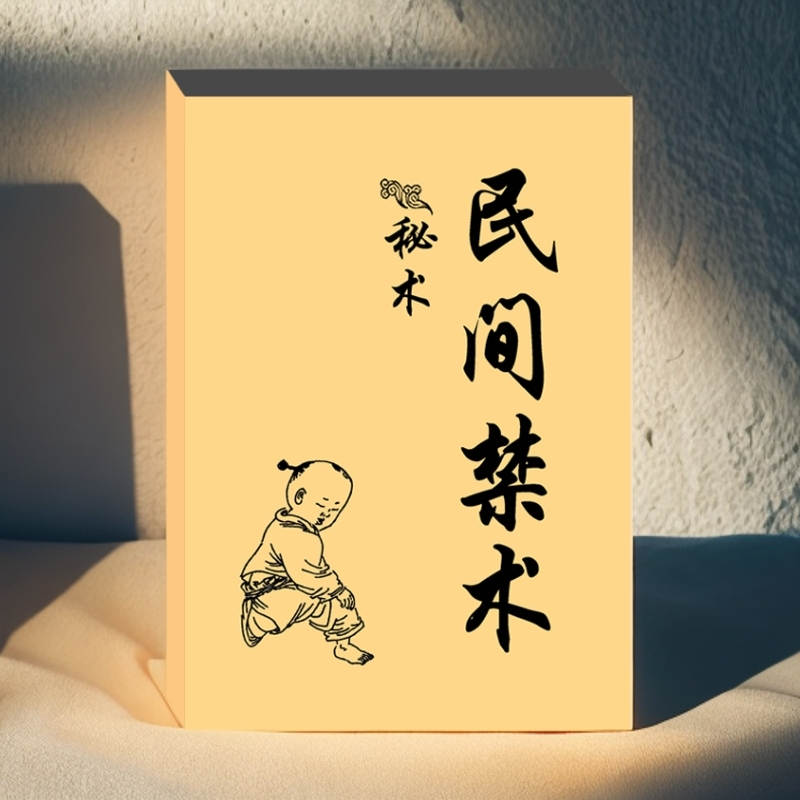 民间禁术
秘术